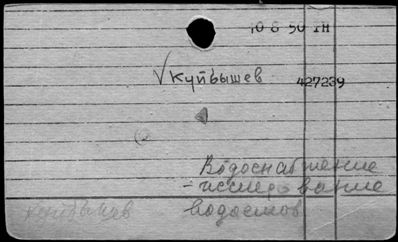 10 8 50 IH
√ Куйбышев
427239
Водоснабжение
- исследование
Куйбышев водоемов